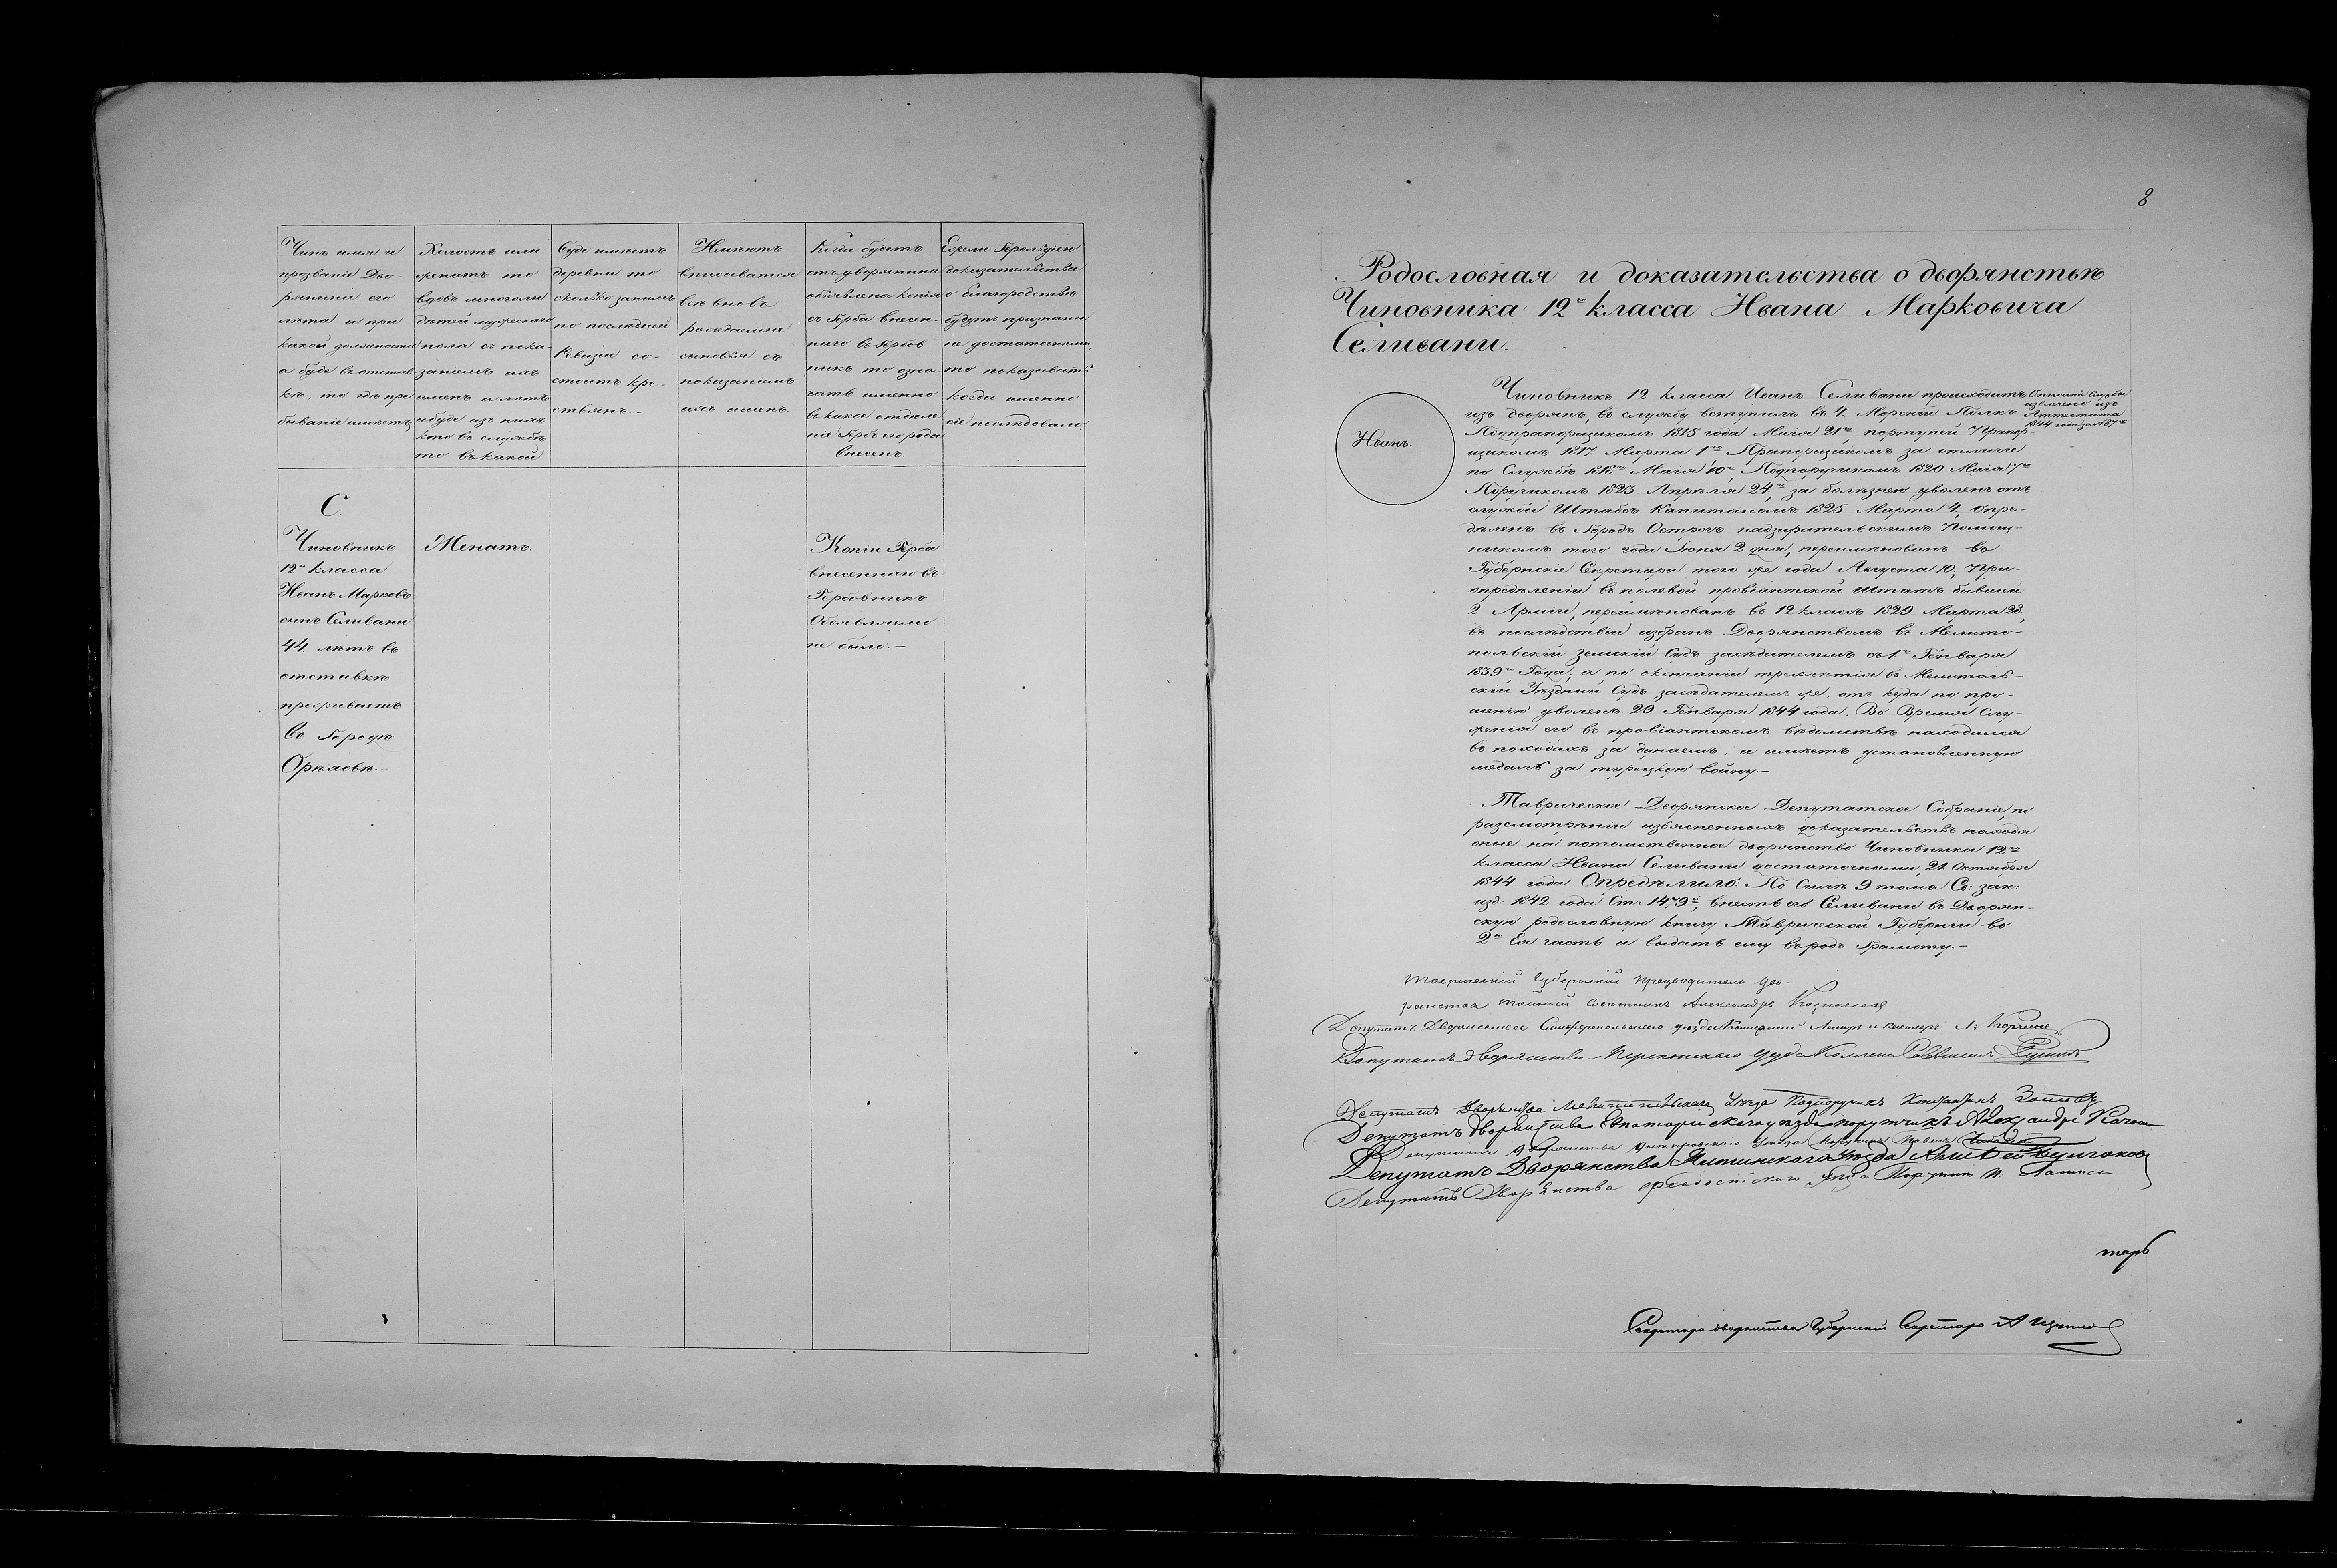 Чинъ имя и
прозваніе Дво-
рянина его
лѣта и при
какой должности
а буде въ отстав
кѣ, то гдѣ пре
бываніе имѣетъ
Холостъ или
женатъ то
вдовъ многоли
дѣтей мужескаго
пола съ пока-
заніемъ ихъ
именъ и лѣтъ
и буде изъ нихъ
кто въ службѣ
то въ какой
Буде имѣетъ
деревни то
сколько за нимъ
по послѣдней
Ревизіи со-
стоитъ кре-
стьянъ.-
Имѣютъ
вписыватся
всѣ вновь
рождаемые
сыновья съ
показаніемъ
ихъ именъ.
Когда будетъ
отъ дворянина
объявлена копія
съ Герба внесен-
наго въ Гербов-
никъ то озна-
чать именно
въ како отдѣле
ніе Гербъ его рода
внесенъ
Ежели Герольдіею
доказательства
о благородствѣ
будутъ признаны
не достаточными,
то показывать
когда именно
сіе послѣдовало.
С.
Чиновникъ
12го класса
Иванъ Марковъ
сынъ Селивани
44. лѣтъ въ
отставкѣ
проживаетъ
въ Городѣ
Орѣховѣ.-
Женатъ.
Копіи Герба
внесеннаго въ
Гербовникъ
Объявляемо
не было.-
8
Родословная и доказательства о дворянствѣ
Чиновника 12го класса Ивана Марковича
Селивани.
Иванъ.
Описаніе службы
извлечено изъ
Аттестата
1844 года за №87мъ
Чиновникъ 12 класса Иванъ Селивани происходитъ
изъ дворянъ, въ службу вступилъ въ 4. Морскій Полкъ
Подпрапорщикомъ 1815 года Маія 21го, портупей Прапор-
щикомъ 1817 Марта 1го Прапорщикомъ за отличіе
по Службѣ 1818го Маія 10го, Подпоручикомъ 1820 Маія 7го
Поручикомъ 1823 Апрѣля 24го, за болѣзнею уволенъ отъ
службы Штабсъ Капитаномъ 1825 Марта 4, опре-
дѣленъ въ Городъ Острогъ надзирательскимъ Помощ-
никомъ того года Іюня 2 дня, переименованъ въ
Губернскіе Секретари того же года Августа 10, При
опредѣленіи въ полевой провіантской Штатъ бывшей
2 Арміи, переименованъ въ 12 классъ 1829 Марта 28,
въ послѣдствіи избранъ Дворянствомъ въ Мелито-
польскій Земскій Судъ засѣдателемъ съ 1го Генваря
1839го Года, а по окончаніи трехлѣтія въ Мелитоль-
скій Уѣздный Судъ засѣдателемъ же, отъ куда по про-
шенію уволенъ 29 Генваря 1844 года. Во Время Слу-
женія его въ провіантскомъ вѣдомствѣ находился
въ походахъ за дунаемъ, и имѣетъ установленную
медаль за турецкую войну.-
Таврическое Дворянское Депутатское Собраніе, по
разсмотрѣніи изъясненныхъ доказательствъ находя
оные на потомственное дворянство Чиновника 12го
класса Ивана Селивани достаточными, 21 Октября
1844 года Опредѣлило: По Силѣ 9 тома Св: зак:
изд: 1842 года Ст: внесть его Селивани въ Дворян-
скую родословную книгу Таврической Губерніи во
2ю Ея часть и выдать ему въ родъ Грамоту.-
Таврическій Губернскій Предводитель дво-
рянства тайный совѣтникъ Александръ Казначеев
Депутатъ Дворянства Симферопольскаго уѣзда и кавалеръ
Депутатъ дворянства Перекопскаго уѣзда
Депутатъ Дворянства Мелитопольскаго Уѣзда Подпоручикъ Константинъ
Депутатъ дворянства Евпаторійскаго уѣзда поручикъ Александръ
Депутатъ Дворянства Днѣпровскаго Уѣзда
Депутатъ Дворянства Ялтинскаго Уѣзда
Депутатъ Дворянства Феодосійскаго Уѣзда Поручикъ
тарь
Секретарь дворянства Губернскій Секретарь А